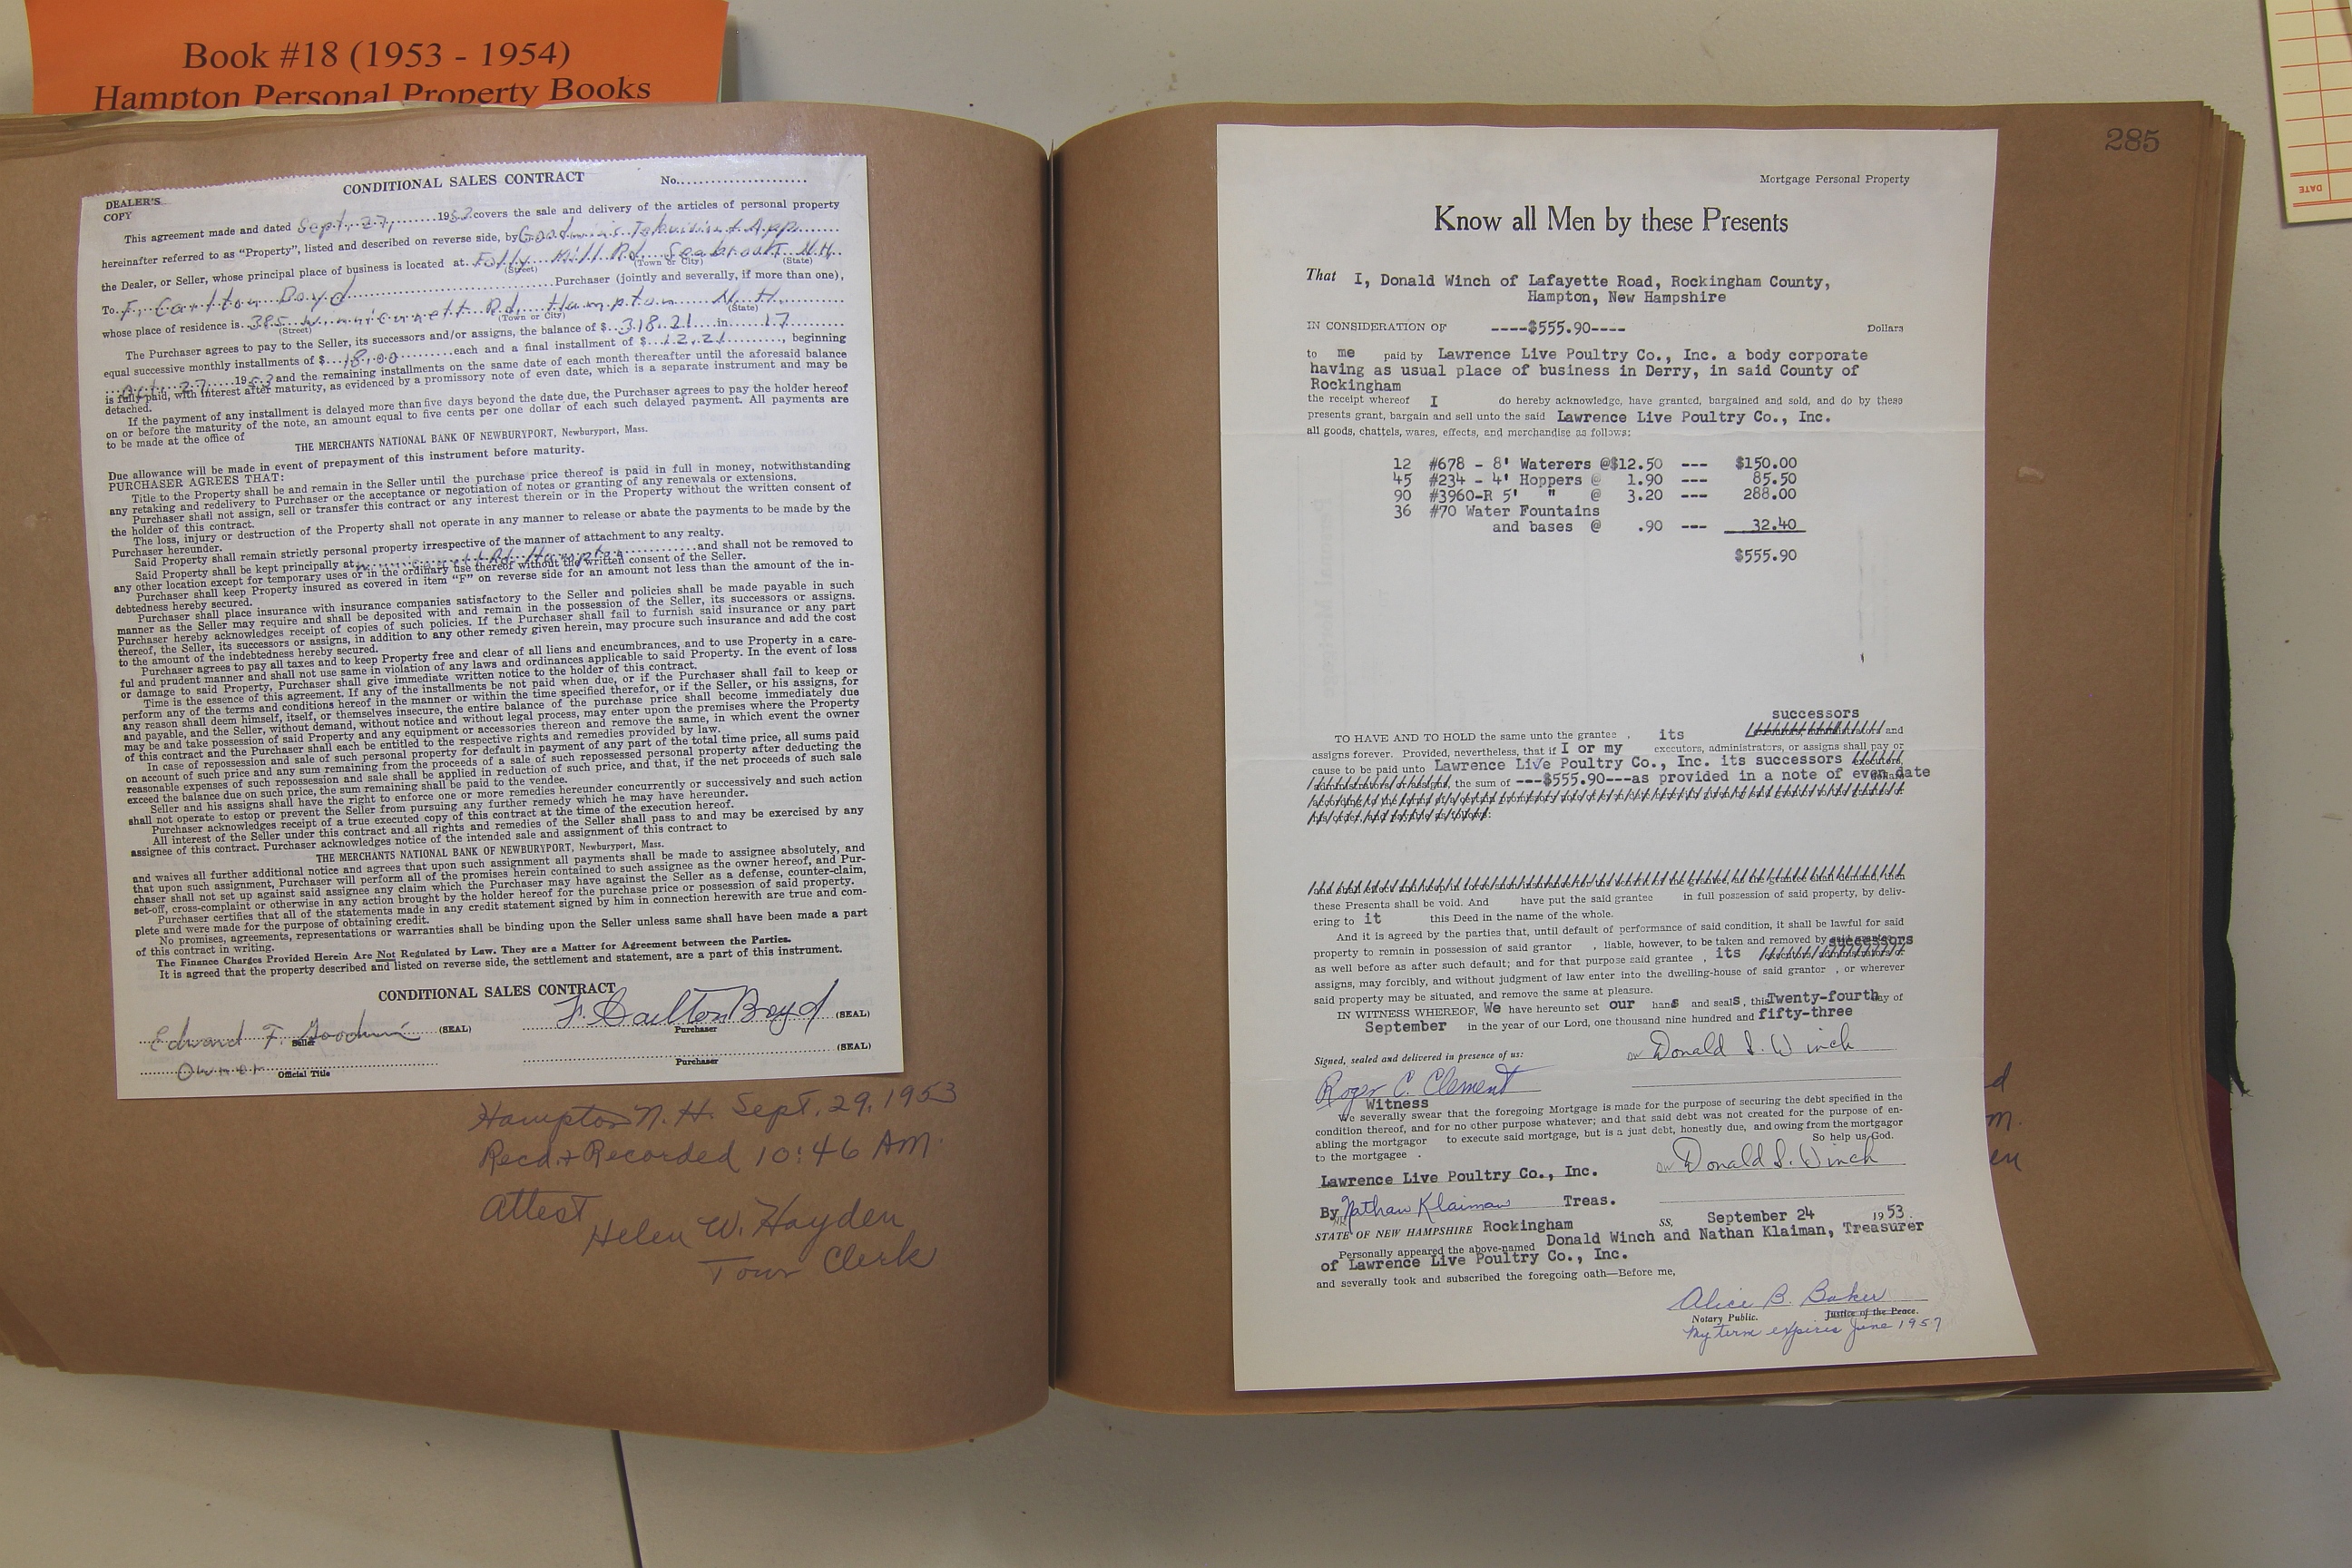 Book #18 (1953 - 1954)
Hampton Personal Property Books
CONDITIONAL SALES CONTRACT No.
DEALER'S
COPY
This agreement made and dated Sept. 27, 1953 covers the sale and delivery of the articles of personal property
hereinafter referred to as "Property", listed and described on reverse side, by Goodwins Television & App.
the Dealer, or Seller, whose principal place of business is located at Folly Mill Rd. Seabrook N.H.
(Street) (Town or City) (State)
To F. Carlton Boyd Purchaser (jointly and severally, if more than one),
whose place of residence is 385 Winnicunett Rd. Hampton N.H.
(Street) (Town or City) (State)
The Purchaser agrees to pay to the Seller, its successors and/or assigns, the balance of $ 318.21 in 17
equal successive monthly installments of $ 18.00 each and a final installment of $ 12.21, beginning
Oct. 27, 1953 and the remaining installments on the same date of each month thereafter until the aforesaid balance
is fully paid, with interest after maturity, as evidenced by a promissory note of even date, which is a separate instrument and may be
detached.
If the payment of any installment is delayed more than five days beyond the date due, the Purchaser agrees to pay the holder hereof
on or before the maturity of the note, an amount equal to five cents per one dollar of each such delayed payment. All payments are
to be made at the office of
THE MERCHANTS NATIONAL BANK OF NEWBURYPORT, Newburyport, Mass.
Due allowance will be made in event of prepayment of this instrument before maturity.
PURCHASER AGREES THAT:
Title to the Property shall be and remain in the Seller until the purchase price thereof is paid in full in money, notwithstanding
any retaking and redelivery to Purchaser or the acceptance or negotiation of notes or granting of any renewals or extensions.
Purchaser shall not assign, sell or transfer this contract or any interest therein or in the Property without the written consent of
the holder of this contract.
The loss, injury or destruction of the Property shall not operate in any manner to release or abate the payments to be made by the
Purchaser hereunder.
Said Property shall remain strictly personal property irrespective of the manner of attachment to any realty.
Said Property shall be kept principally at Rd. Hampton and shall not be removed to
any other location except for temporary uses or in the ordinary use thereof without the written consent of the Seller.
Purchaser shall keep Property insured as covered in item "F" on reverse side for an amount not less than the amount of the in-
debtedness hereby secured.
Purchaser shall place insurance with insurance companies satisfactory to the Seller and policies shall be made payable in such
manner as the Seller may require and shall be deposited with and remain in the possession of the Seller, its successors or assigns.
Purchaser hereby acknowledges receipt of copies of such policies. If the Purchaser shall fail to furnish said insurance or any part
thereof, the Seller, its successors or assigns, in addition to any other remedy given herein, may procure such insurance and add the cost
to the amount of the indebtedness hereby secured.
Purchaser agrees to pay all taxes and to keep Property free and clear of all liens and encumbrances, and to use Property in a care-
ful and prudent manner and shall not use same in violation of any laws and ordinances applicable to said Property. In the event of loss
or damage to said Property, Purchaser shall give immediate written notice to the holder of this contract.
Time is the essence of this agreement. If any of the installments be not paid when due, or if the Purchaser shall fail to keep or
perform any of the terms and conditions hereof in the manner or within the time specified therefor, or if the Seller, or his assigns, for
any reason shall deem himself, itself, or themselves insecure, the entire balance of the purchase price shall become immediately due
and payable, and the Seller, without demand, without notice and without legal process, may enter upon the premises where the Property
may be and take possession of said Property and any equipment or accessories thereon and remove the same, in which event the owner
of this contract and the Purchaser shall each be entitled to the respective rights and remedies provided by law.
In case of repossession and sale of such personal property for default in payment of any part of the total time price, all sums paid
on account of such price and any sum remaining from the proceeds of a sale of such repossessed personal property after deducting the
reasonable expenses of such repossession and sale shall be applied in reduction of such price, and that, if the net proceeds of such sale
exceed the balance due on such price, the sum remaining shall be paid to the vendee.
Seller and his assigns shall have the right to enforce one or more remedies hereunder concurrently or successively and such action
shall not operate to estop or prevent the Seller from pursuing any further remedy which he may have hereunder.
Purchaser acknowledges receipt of a true executed copy of this contract at the time of the execution hereof.
All interest of the Seller under this contract and all rights and remedies of the Seller shall pass to and may be exercised by any
assignee of this contract. Purchaser acknowledges notice of the intended sale and assignment of this contract to
THE MERCHANTS NATIONAL BANK OF NEWBURYPORT, Newburyport, Mass.
and waives all further additional notice and agrees that upon such assignment all payments shall be made to assignee absolutely, and
that upon such assignment, Purchaser will perform all of the promises herein contained to such assignee as the owner hereof, and Pur-
chaser shall not set up against said assignee any claim which the Purchaser may have against the Seller as a defense, counter-claim,
set-off, cross-complaint or otherwise in any action brought by the holder hereof for the purchase price or possession of said property.
Purchaser certifies that all of the statements made in any credit statement signed by him in connection herewith are true and com-
plete and were made for the purpose of obtaining credit.
No promises, agreements, representations or warranties shall be binding upon the Seller unless same shall have been made a part
of this contract in writing.
The Finance Charges Provided Herein Are Not Regulated by Law. They are a Matter for Agreement between the Parties.
It is agreed that the property described and listed on reverse side, the settlement and statement, are a part of this instrument.
CONDITIONAL SALES CONTRACT
Edward F. Goodwin (SEAL) F. Carlton Boyd (SEAL)
Seller Purchaser
Owner (SEAL)
Official Title Purchaser
Hampton N.H. Sept. 29, 1953
Recd. & Recorded 10:46 AM.
Attest
Helen W. Hayden
Town Clerk
285
Mortgage Personal Property
Know all Men by these Presents
That I, Donald Winch of Lafayette Road, Rockingham County,
Hampton, New Hampshire
IN CONSIDERATION OF ----$555.90---- Dollars
to me paid by Lawrence Live Poultry Co., Inc. a body corporate
having as usual place of business in Derry, in said County of
Rockingham
the receipt whereof I do hereby acknowledge, have granted, bargained and sold, and do by these
presents grant, bargain and sell unto the said Lawrence Live Poultry Co., Inc.
all goods, chattels, wares, effects, and merchandise as follows:
12 #678 - 8' Waterers @$12.50 --- $150.00
45 #234 - 4' Hoppers @ 1.90 --- 85.50
90 #3960-R 5' " @ 3.20 --- 288.00
36 #70 Water Fountains
and bases @ .90 --- 32.40
$555.90
successors
TO HAVE AND TO HOLD the same unto the grantee , its executors, administrators and
assigns forever. Provided, nevertheless, that if I or my executors, administrators, or assigns shall pay or
cause to be paid unto Lawrence Live Poultry Co., Inc. its successors executors,
administrators or assigns, the sum of ---$555.90---as provided in a note of even date
according to the terms of a certain promissory note of even date herewith given by said grantor to the grantee or
his order, and payable as follows:
and shall effect and keep in force such insurance for the benefit of the grantee, as the grantee shall demand, then
these Presents shall be void. And have put the said grantee in full possession of said property, by deliv-
ering to it this Deed in the name of the whole.
And it is agreed by the parties that, until default of performance of said condition, it shall be lawful for said
property to remain in possession of said grantor , liable, however, to be taken and removed by said grantee successors
as well before as after such default; and for that purpose said grantee , its executors, administrators or
assigns, may forcibly, and without judgment of law enter into the dwelling-house of said grantor , or wherever
said property may be situated, and remove the same at pleasure.
IN WITNESS WHEREOF, We have hereunto set our hands and seals, this Twenty-fourth day of
September in the year of our Lord, one thousand nine hundred and fifty-three
Signed, sealed and delivered in presence of us: Donald S. Winch
Roger C. Clement
Witness
We severally swear that the foregoing Mortgage is made for the purpose of securing the debt specified in the
condition thereof, and for no other purpose whatever; and that said debt was not created for the purpose of en-
abling the mortgagor to execute said mortgage, but is a just debt, honestly due, and owing from the mortgagor
to the mortgagee . So help us God.
Lawrence Live Poultry Co., Inc. Donald S. Winch
By Nathan Klaiman Treas.
STATE OF NEW HAMPSHIRE Rockingham SS, September 24 1953.
Personally appeared the above-named Donald Winch and Nathan Klaiman, Treasurer
of Lawrence Live Poultry Co., Inc.
and severally took and subscribed the foregoing oath—Before me,
Alice B. Baker
Notary Public. Justice of the Peace.
My term expires June 1957
DATE